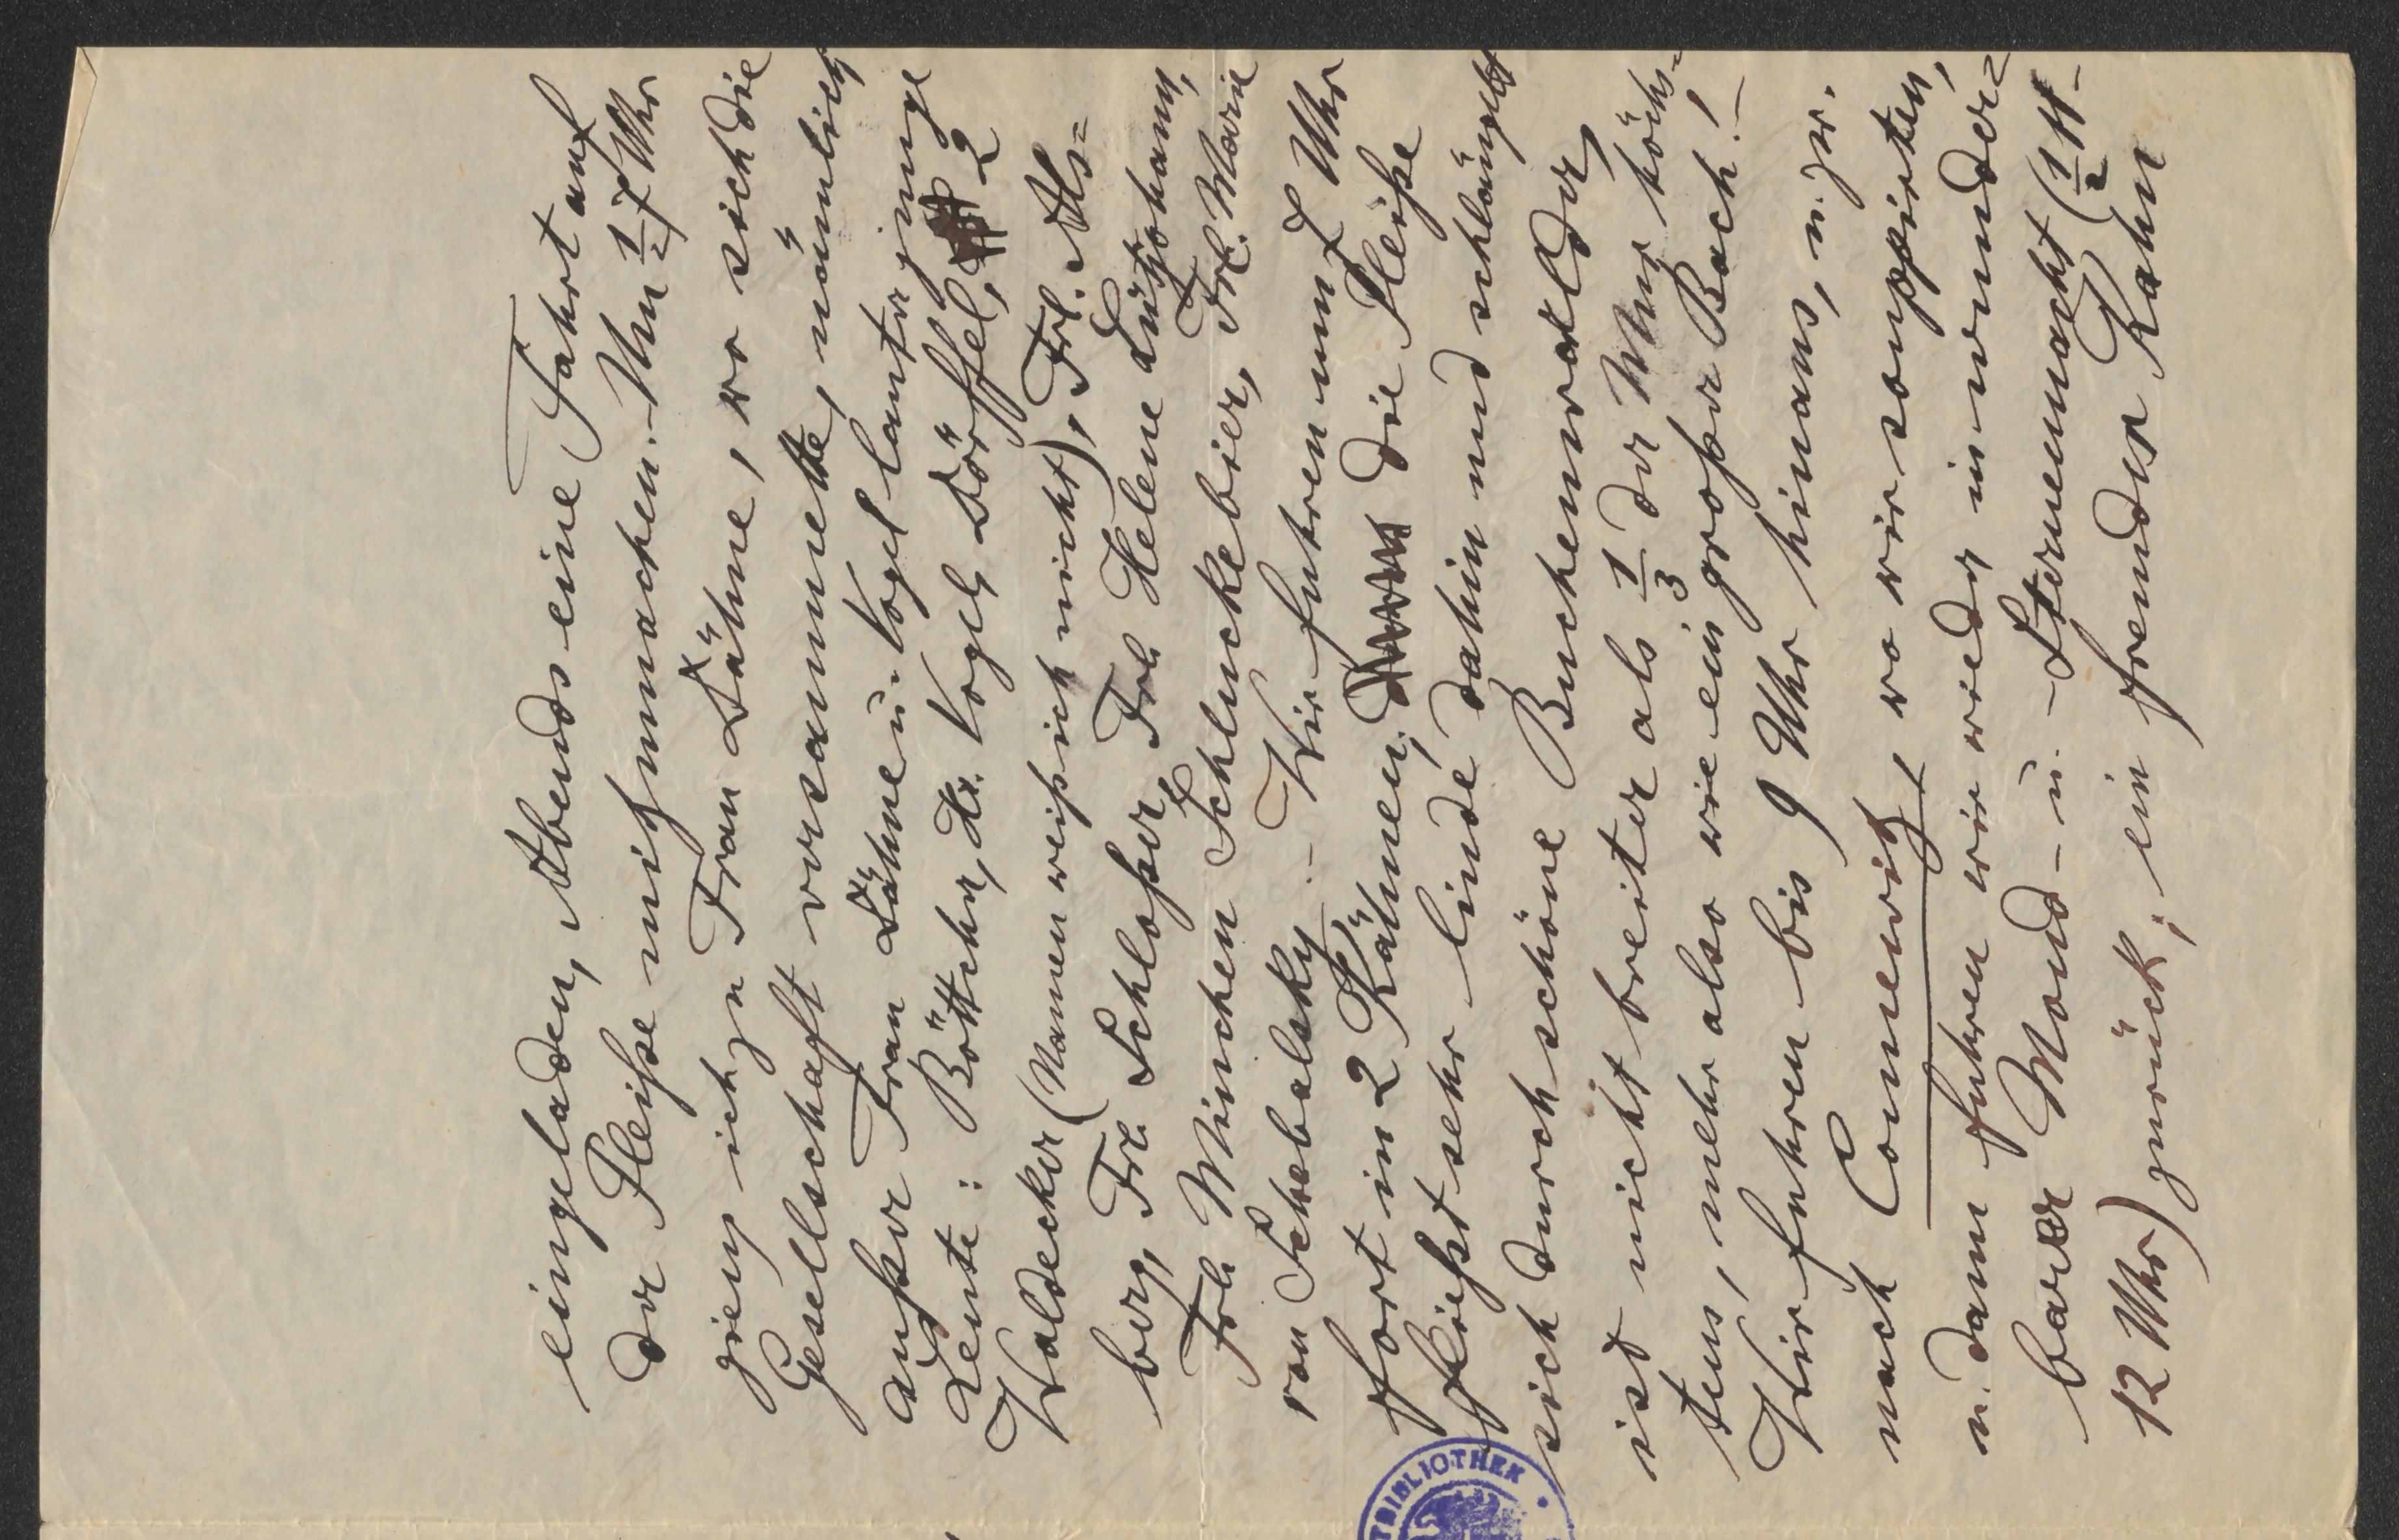 eingeladen, Abends eine Fahrt auf
der Pleiße mitzumachen. Um ½7 Uhr
gieng ich zu Frau Dähne, wo sich die
Gesellschaft versammelte, nämlich
außer Frau Dähne u. Vogel lauter junge
Leute: Böttcher, Hr. Vogel, Löffel, 2
Waldecker (Namen weiß ich nicht), Frl. Als=
berg, Frl. Schloßer, Frl. Helene Lützohann,
Frl. Minchen Schluckebier, Frl. Marie
von Schebalsky. – Wir fuhren um 7 Uhr
fort in 2 Kähnen; die Pleiße
fließt sehr linde dahin und schlängelt
sich durch schöne Buchenwälder,
ist nicht breiter als 1/3 der Mur höch=
stens, mehr also wie ein großer Bach! –
Wir fuhren bis 9 Uhr hinaus, u. zw.
nach Connewitz, wo wir soupirten,
u. dann fuhren wir wieder in wunder=
barer Mond- u. Sternennacht (½11 –
12 Uhr) zurück; ein fremder Kahn
TBIBLIOTHEK